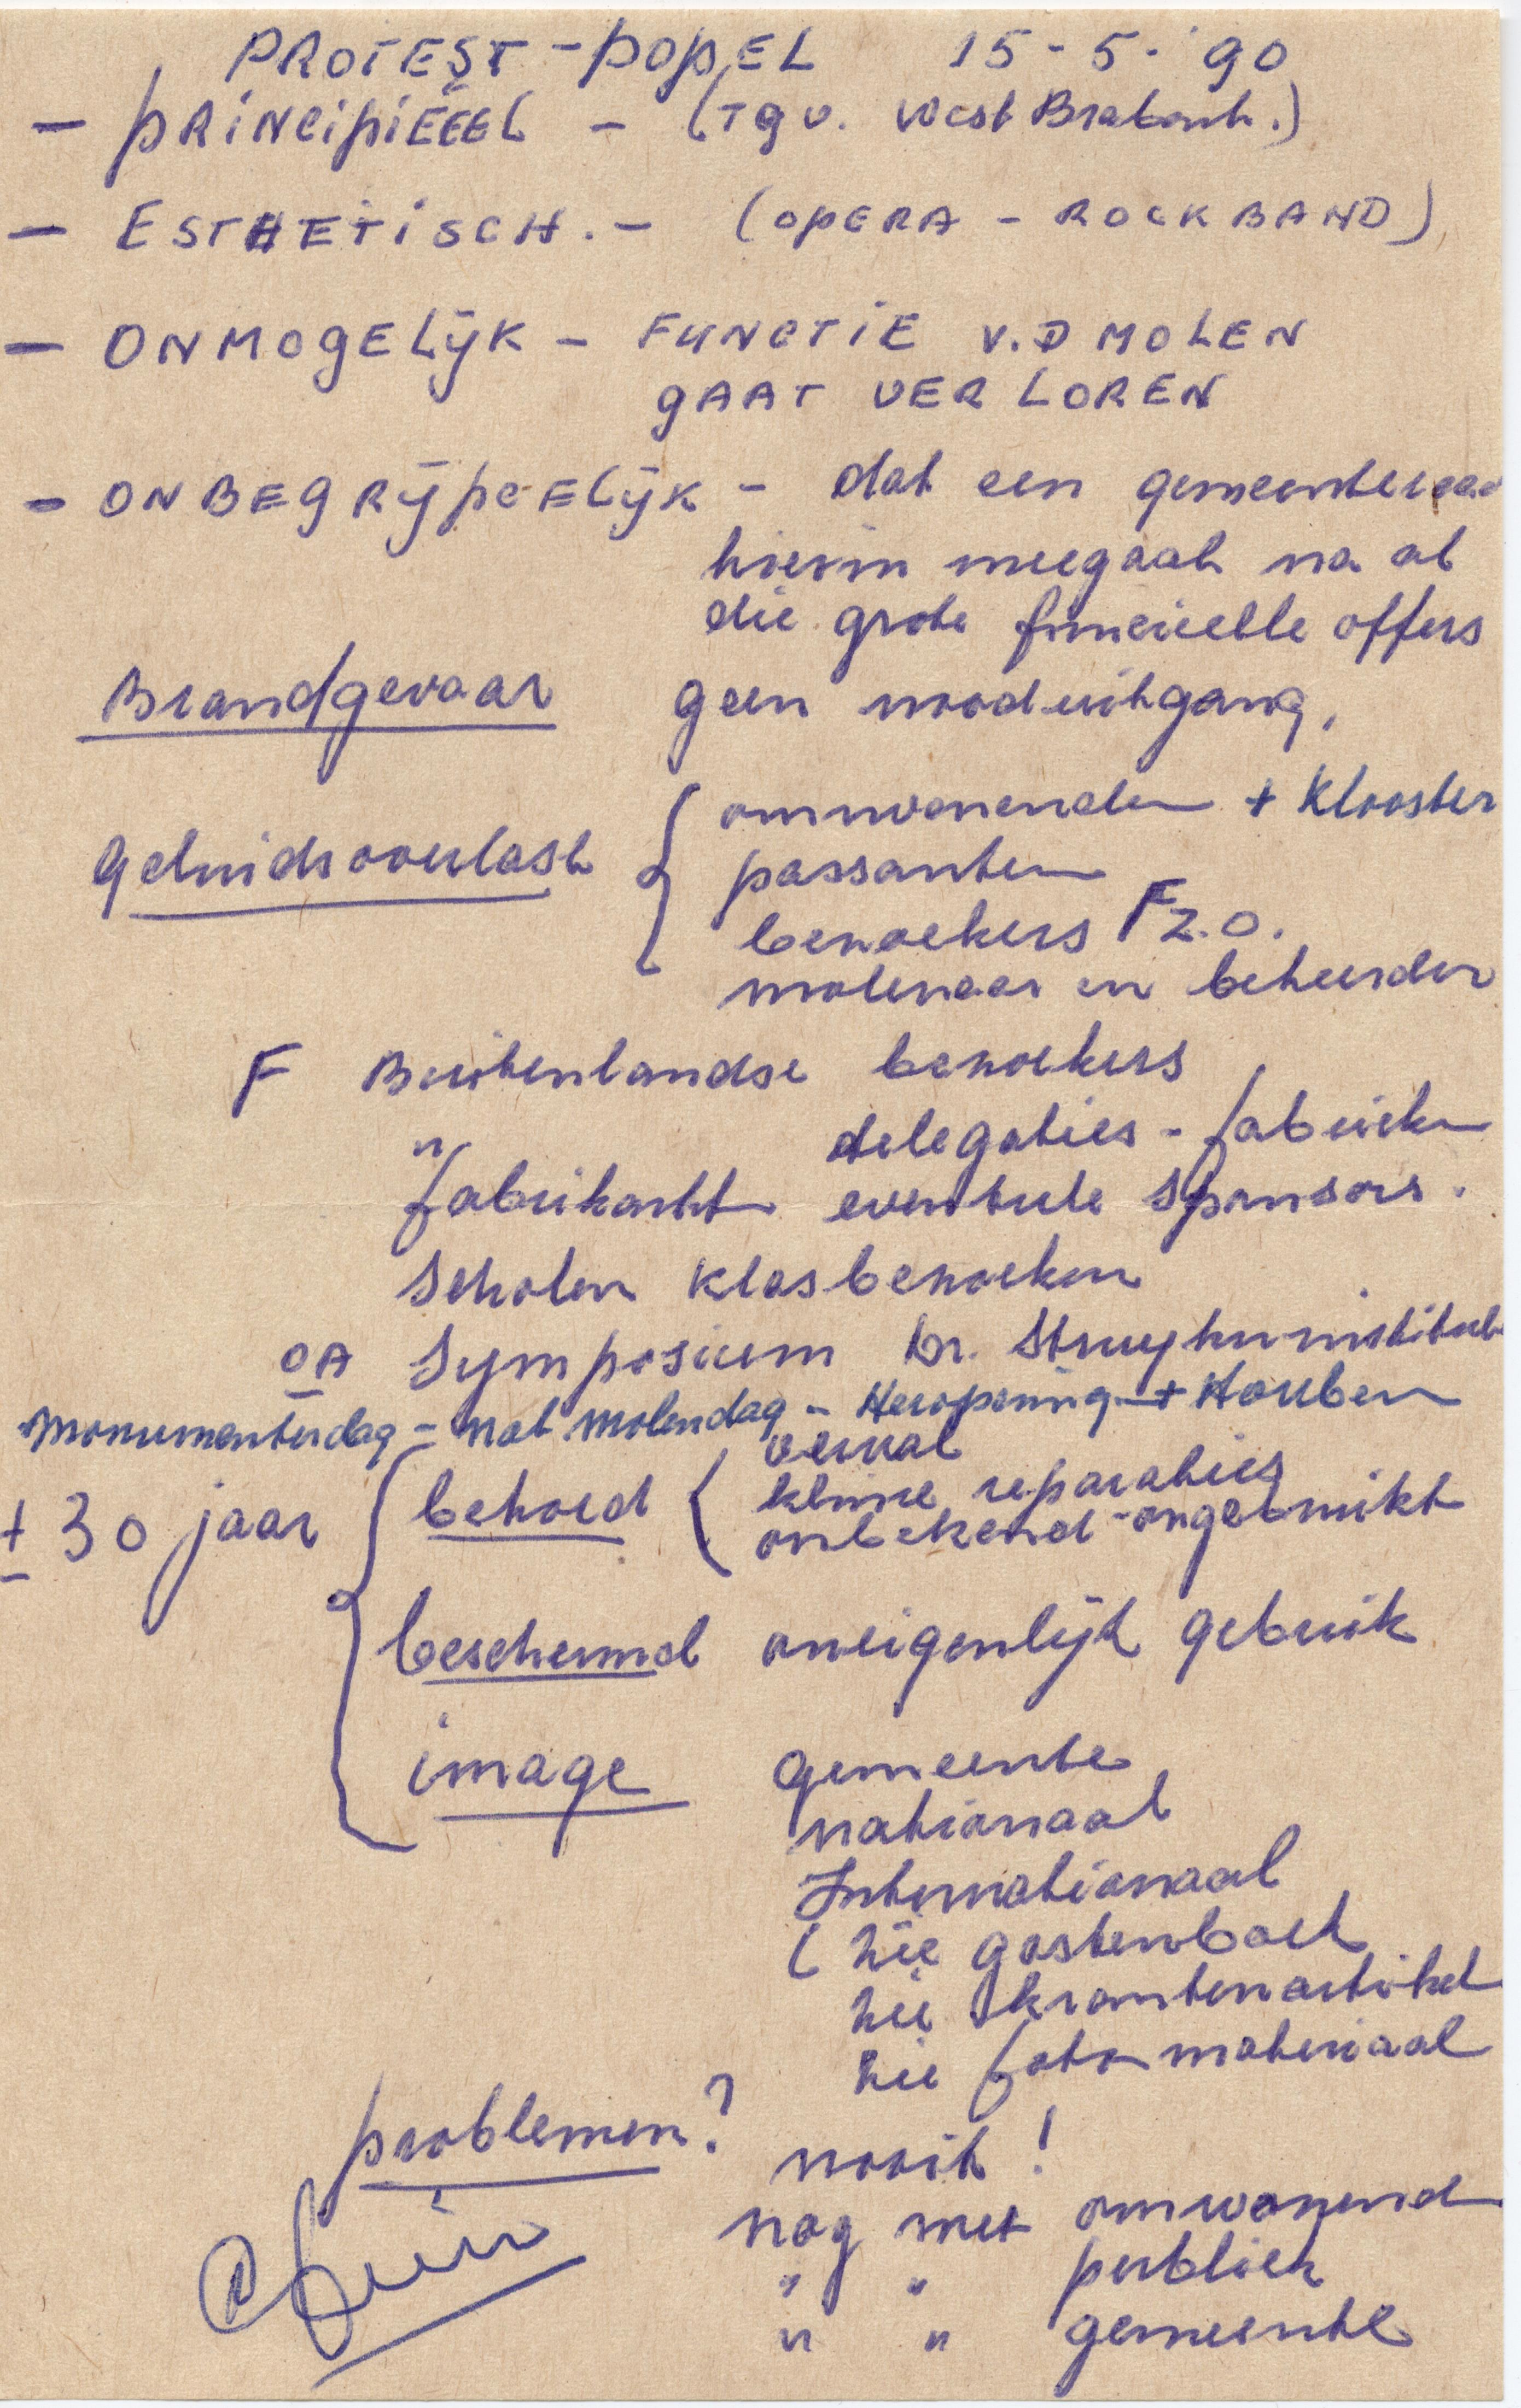 PROTEST - popEL 15-5-'90
- PRINCIPIEEEL - (TgV. West Brabant.)
- ESTHETISCH. - (OPERA - ROCKBAND)
- ONMOGELIJK - FUNCTIE V.D MOLEN
GAAT VERLOREN
- ONBEGRIJPELIJK - dat een gemeenteraad
hierin meegaat na al
die grote finicieelle offers
Brandgevaar geen nooduitgang,
geluidsoverlast { omwonenden + Klooster
passanten
bezoekers F Z.O.
molenaar en beheerder
F Buitenlandse bezoekers
" delegaties - fabrieken
fabrikanten eventuele sponsors.
Scholen klasbezoeken
OA Symposium Dr. Struyckeninstituut
Monumentendag - Nat Molendag - Heropening + Houben
± 30 jaar { behoed { verval
kleine reparaties
onbekend - ongebruikt
beschermd oneigenlijk gebruik
image gemeente
nationaal
Internationaal
( zie gastenboek
zie krantenartikel
zie foto materiaal
problemen? nooit!
nog met omwonend
" " publiek
" " gemeente